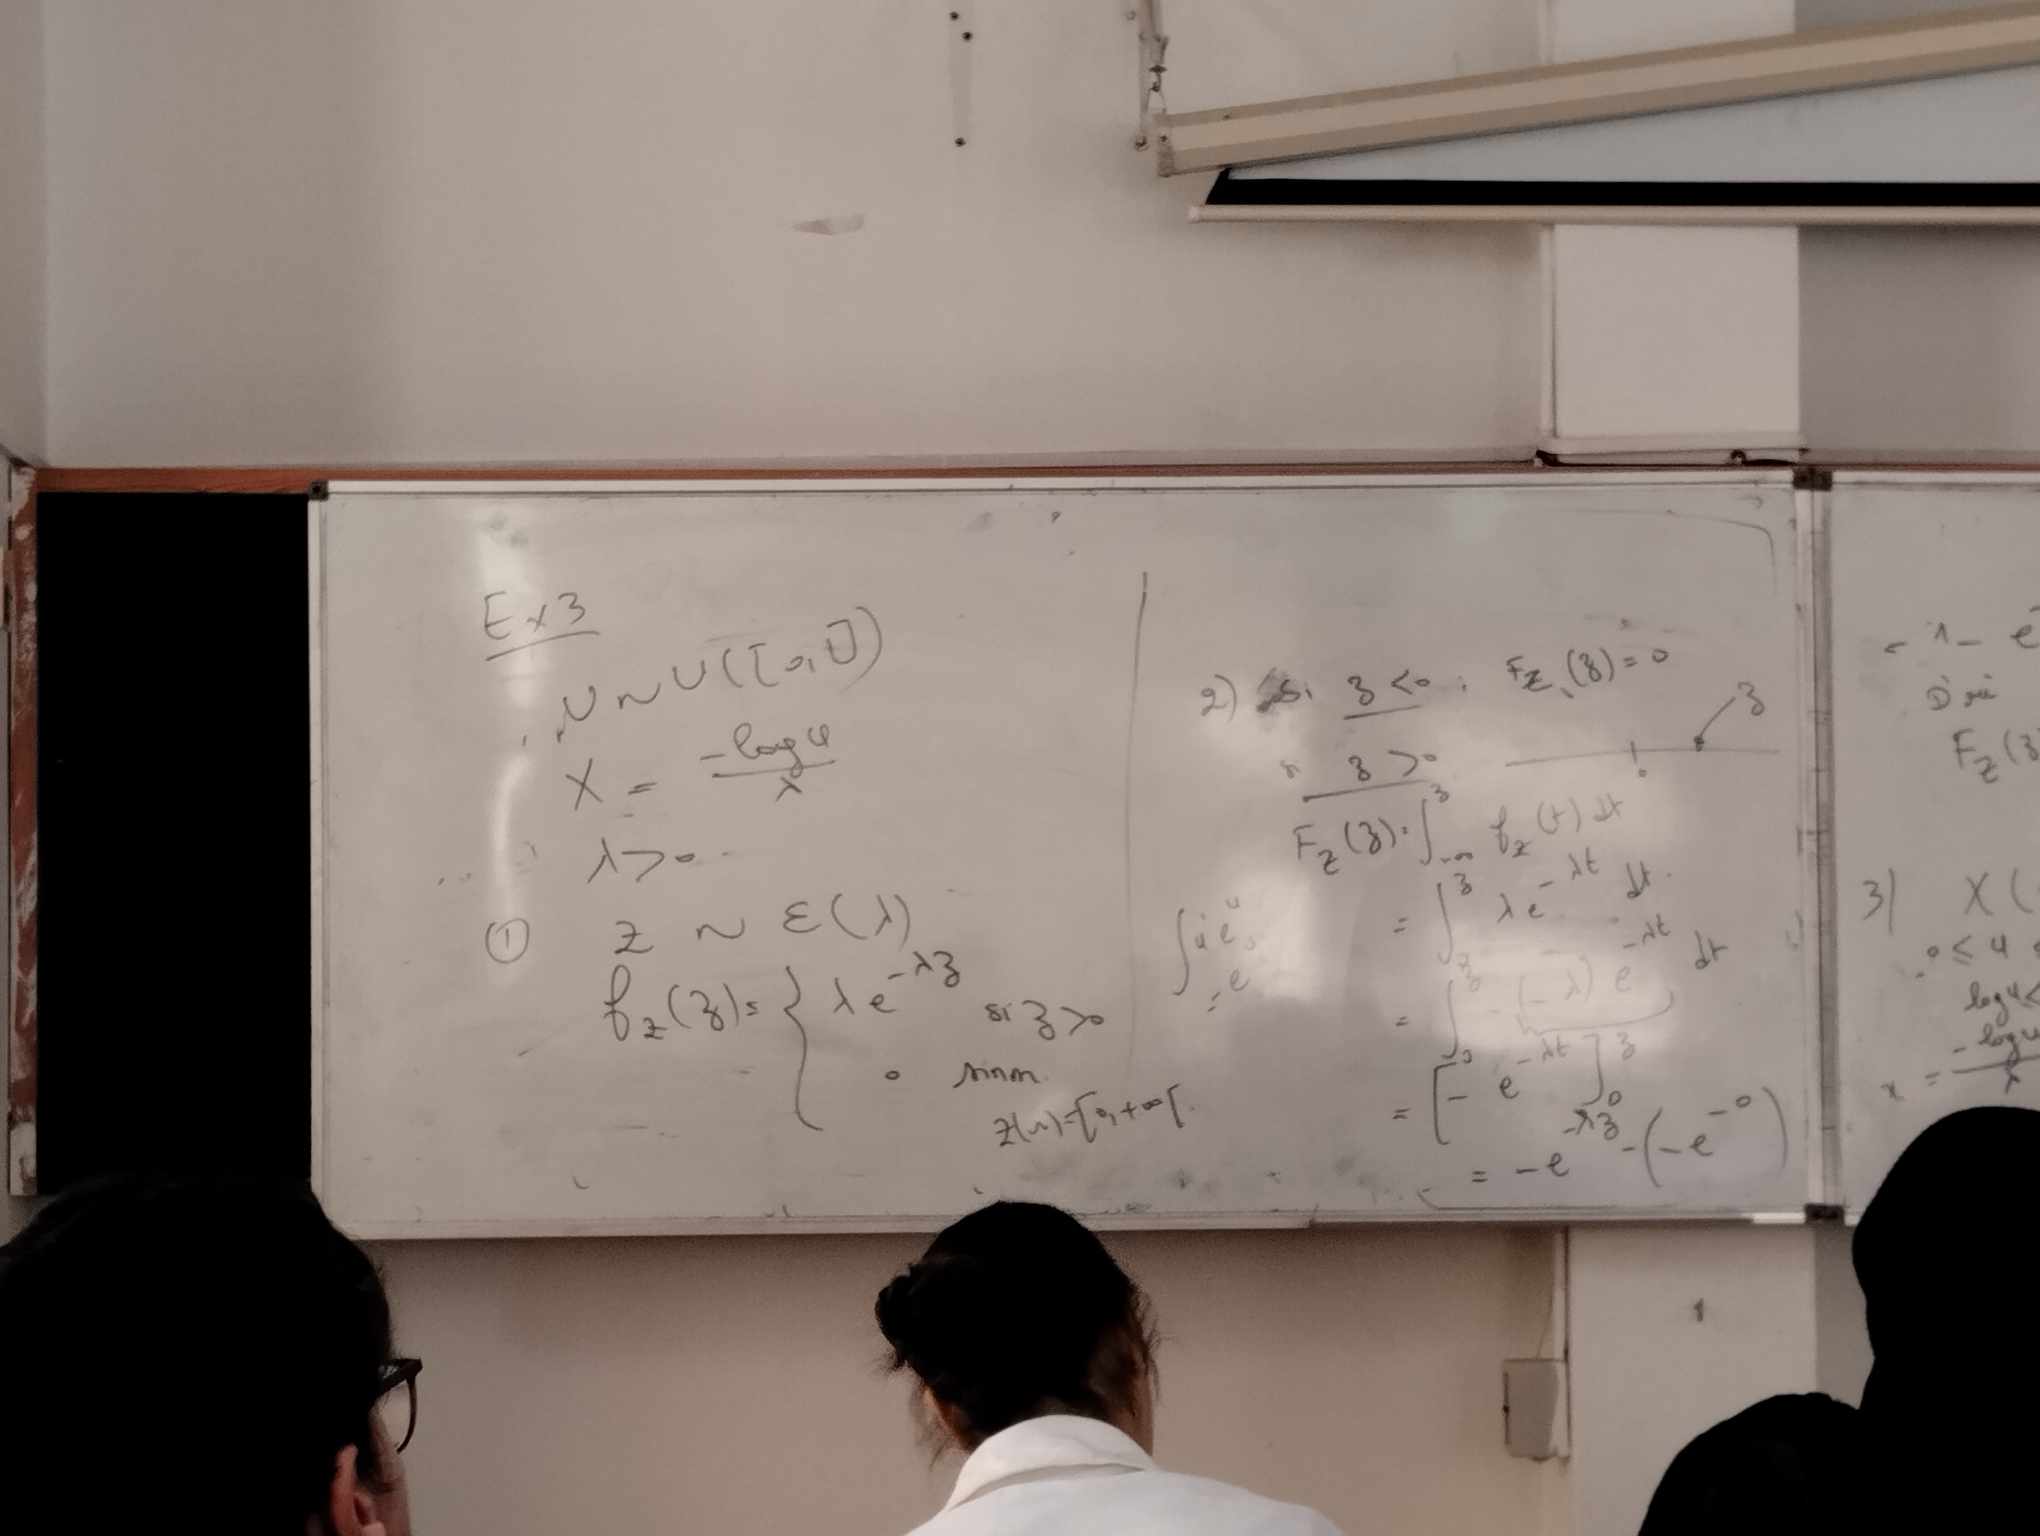 Ex3
U ~ U([0,1])
X = -log U / λ
λ > 0
① Z ~ ε(λ)
f_Z(z) = { λ e^{-λz} si z > 0
0 sinon
Z(Ω) = [0, +∞[
2) si z < 0 : F_Z(z) = 0
si z > 0
z
0
F_Z(z) = ∫_{-∞}^{z} f_Z(t) dt
= ∫_0^z λ e^{-λt} dt
∫ u̇ e^u
= e^u
= ∫_0^z -(-λ) e^{-λt} dt
= [-e^{-λt}]_0^z
= -e^{-λz} - (-e^{-0})
= 1 - e
D'où
F_Z(z
3) X(
0 ≤ u
log u <
x = -log u / λ